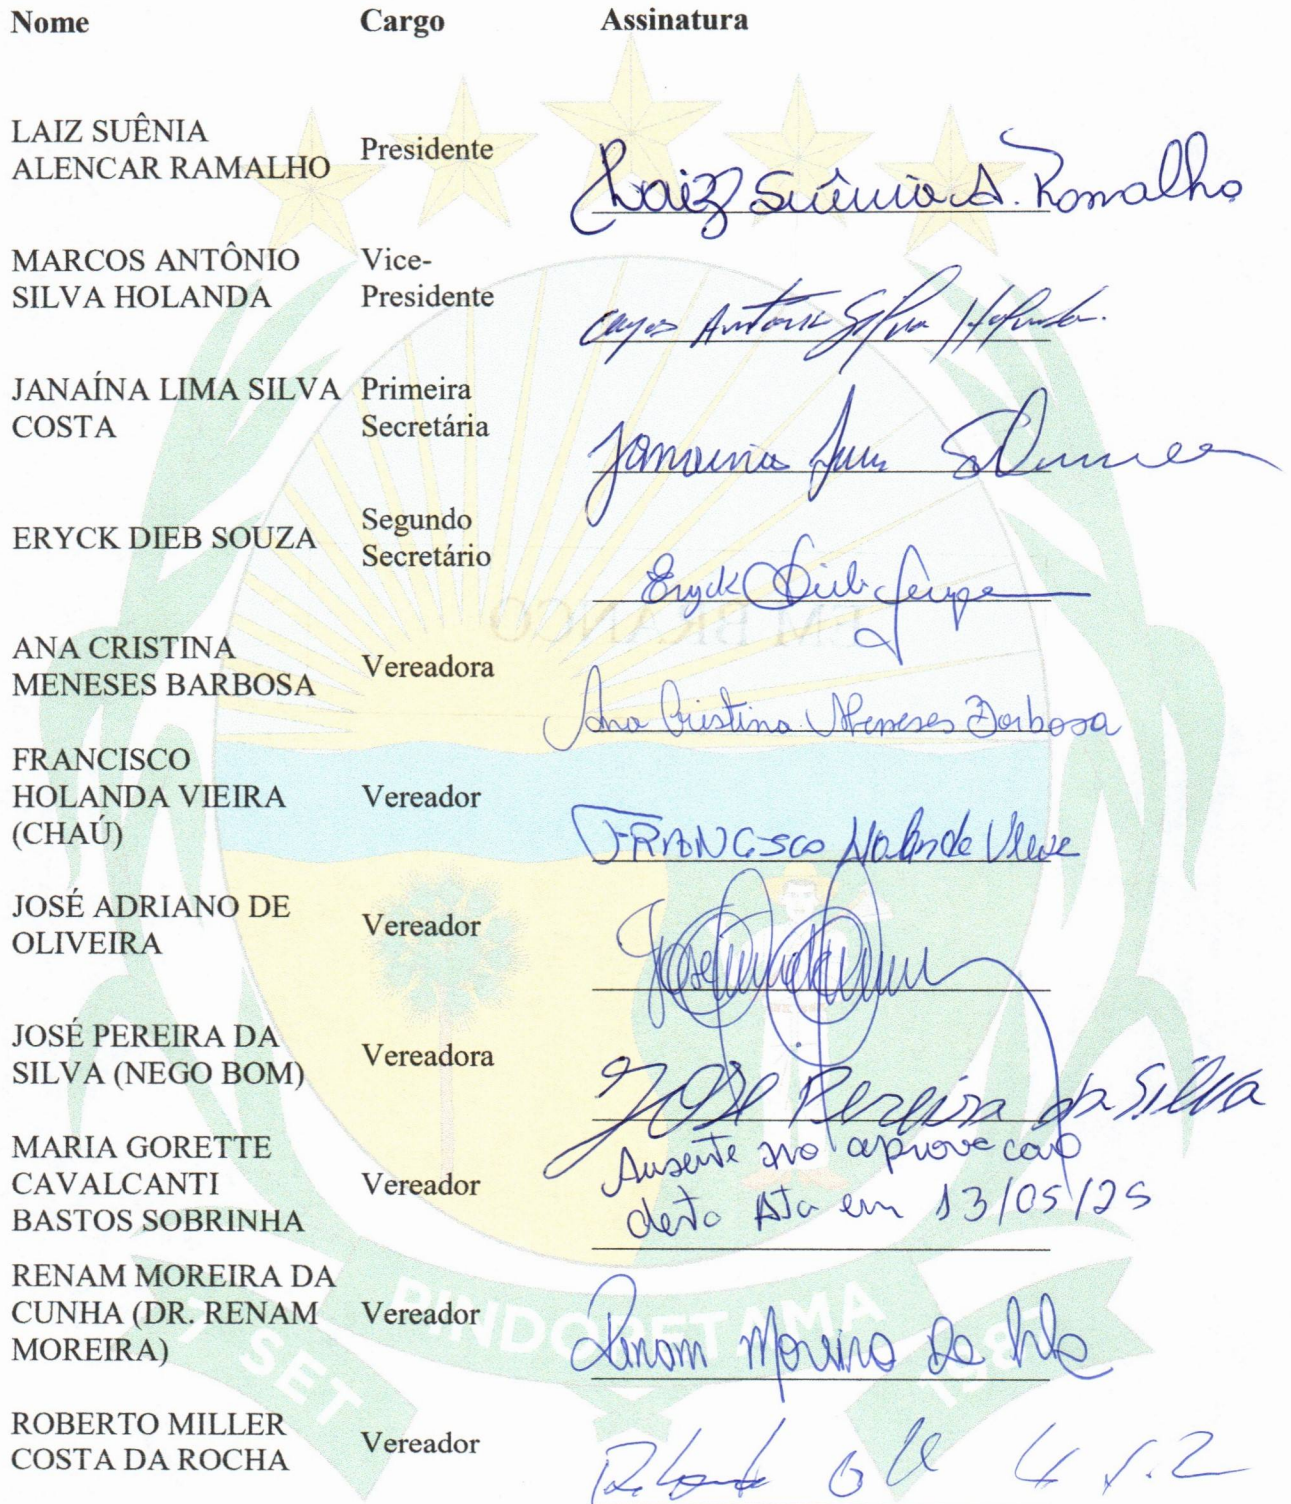 Nome Cargo Assinatura
LAIZ SUÊNIA
ALENCAR RAMALHO
Presidente
Laiz Suênia A. Ramalho
MARCOS ANTÔNIO
SILVA HOLANDA
Vice-
Presidente
Antonio Silva Holanda
JANAÍNA LIMA SILVA
COSTA
Primeira
Secretária
Janaina
ERYCK DIEB SOUZA
Segundo
Secretário
Eryck Dieb
EM BRANCO
ANA CRISTINA
MENESES BARBOSA
Vereadora
Ana Cristina Meneses Barbosa
FRANCISCO
HOLANDA VIEIRA
(CHAÚ)
Vereador
FRANCISCO Holanda
JOSÉ ADRIANO DE
OLIVEIRA
Vereador
Jose
JOSÉ PEREIRA DA
SILVA (NEGO BOM)
Vereadora
JOSE Pereira da Silva
MARIA GORETTE
CAVALCANTI
BASTOS SOBRINHA
Vereador
Ausente na aprovacao
desta Ata em 13/05/25
RENAM MOREIRA DA
CUNHA (DR. RENAM
MOREIRA)
Vereador
Renam Moreira Da
PINDORETAMA
7 SET 1987
ROBERTO MILLER
COSTA DA ROCHA
Vereador